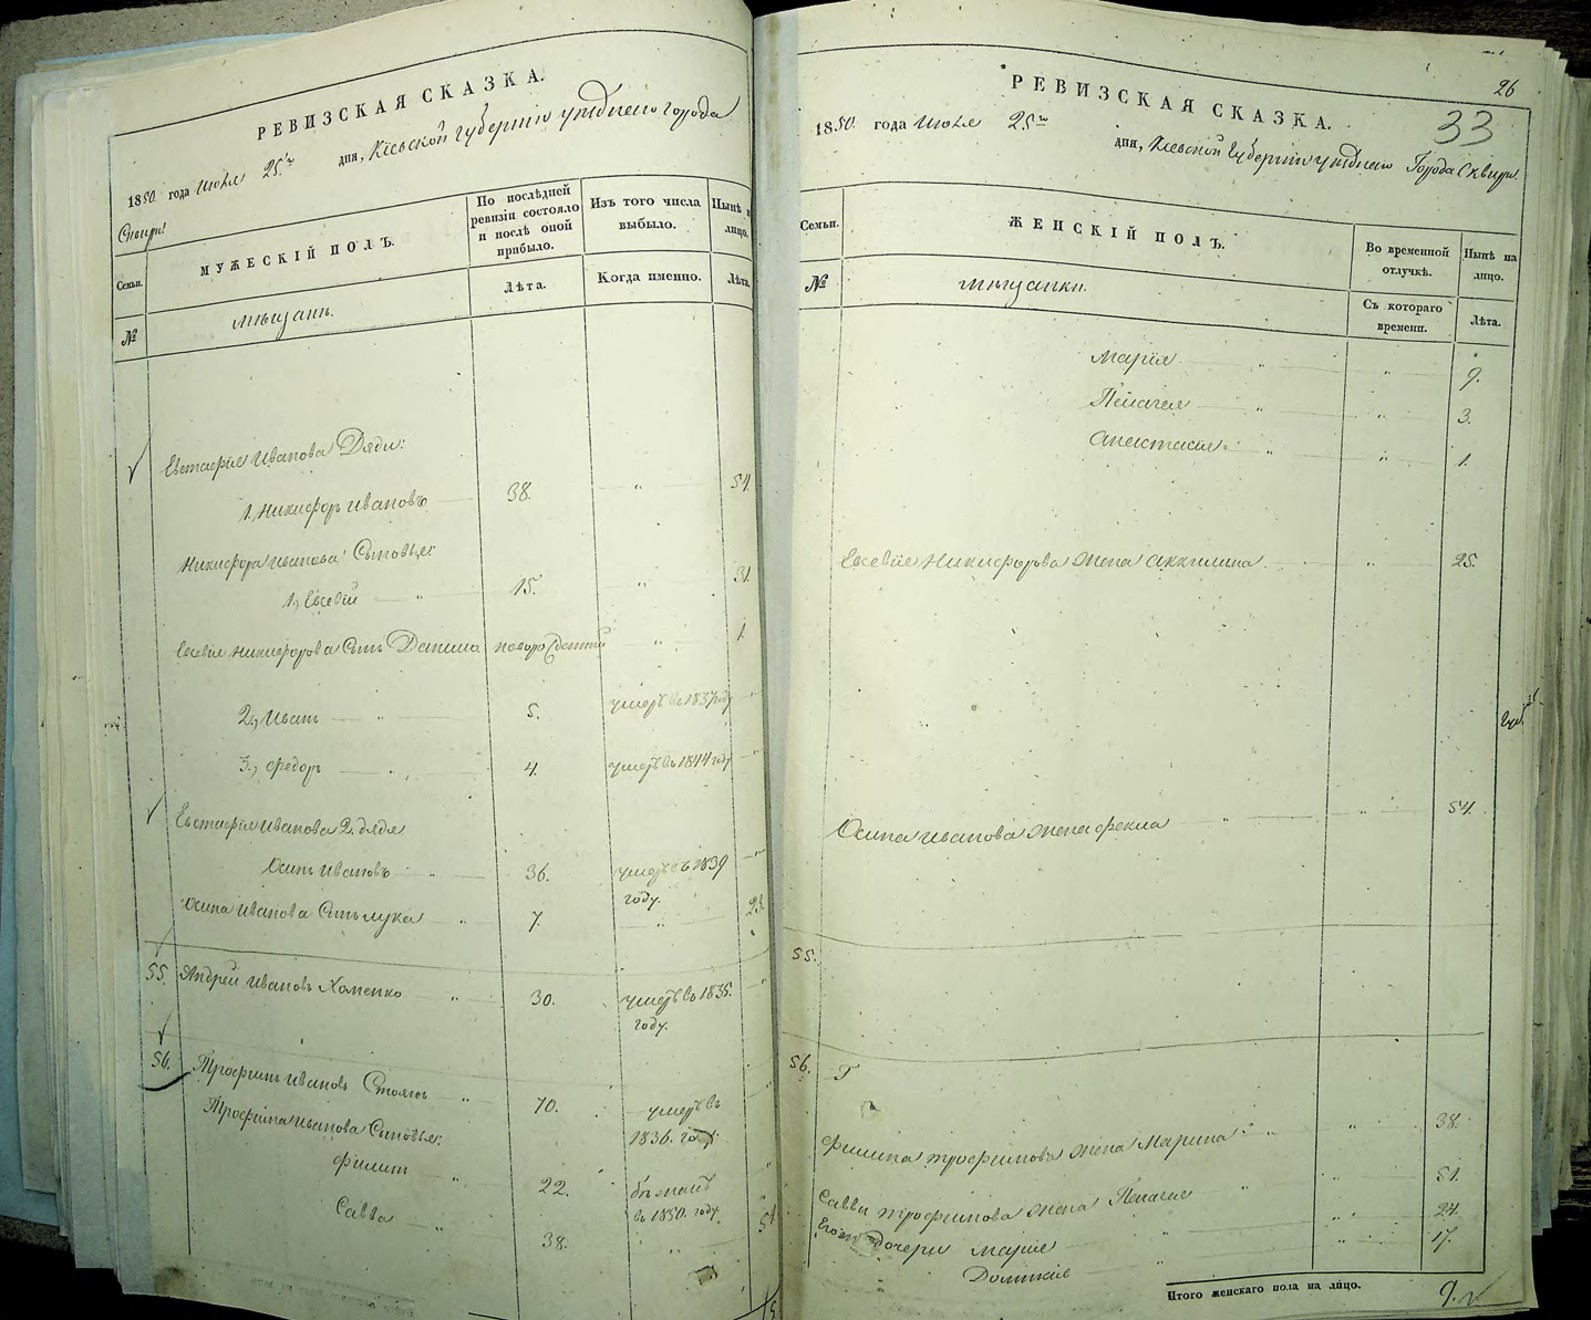 РЕВИЗСКАЯ СКАЗКА.
1850 года Июля 25го дня, Кіевской губерніи уѣзднаго города
Сквиры
Семьи.
МУЖЕСКІЙ ПОЛЪ.
По послѣдней ревизіи состояло и послѣ оной прибыло.
Изъ того числа выбыло.
Нынѣ на лицо.
№
мѣщане.
Лѣта.
Когда именно.
Лѣта.
Евстафія Иванова Дяди:
1. Никифоръ Ивановъ 38. " 54.
Никифора Иванова Сыновья:
1, Евсевій " 15. " 31.
Евсевія Никифорова Сынъ Данило новорожденный " 1.
2, Иванъ " 5. умеръ въ 1837 году "
3, Федоръ " 4. умеръ въ 1844 году "
Евстафія Иванова 2. дядя
Осипъ Ивановъ " 36. умеръ въ 1839 году. "
Осипа Иванова Сынъ Лука " 7. " 23.
55. Андрей Ивановъ Хоменко " 30. умеръ въ 1835. году. "
56. Трофимъ Ивановъ " 70. умеръ въ 1836. году. "
Трофима Иванова Сыновья:
Филипъ " 22. въ 1850. году. "
Савва " 38. "
26
33
РЕВИЗСКАЯ СКАЗКА.
1850. года Июля 25го дня, Кіевской Губерніи уѣзднаго Города Сквиры.
Семьи.
ЖЕНСКІЙ ПОЛЪ.
Во временной отлучкѣ.
Нынѣ на лицо.
№
мѣщанки.
Съ котораго времени.
Лѣта.
Марія " " 9.
Пелагея " " 3.
Анастасія " " 1.
Евсевія Никифорова жена Акилина " 25.
Осипа Иванова жена Фекла " " 54.
55.
56.
Филипа Трофимова жена Марина " " 38.
Саввы Трофимова жена Пелагея " " 51.
дочери Марія " " 24.
Домникія " " 17.
Итого женскаго пола на лицо. 9.